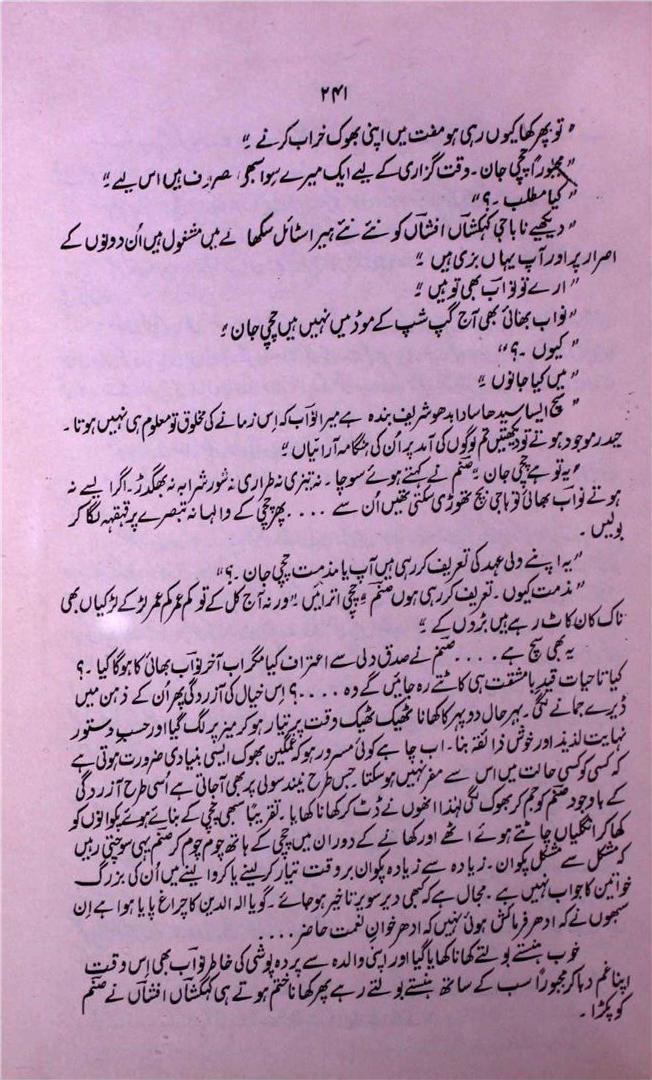 ۲۴۱
"تو پھر کھا کیوں رہی ہو مفت میں اپنی بھوک خراب کرنے۔"
"مجبوراً چچی جان۔ وقت گزاری کے لیے ایک میرے سوا سبھی مصروف ہیں اس لیے۔"
"کیا مطلب۔؟"
"دیکھیے نا باجی کہکشاں افشاں کو نئے نئے ہیر اسٹائل سکھانے میں مشغول ہیں اُن دونوں کے
اصرار پر اور آپ یہاں بزی ہیں۔"
"ارے تو نواب بھی تو ہیں۔"
"نواب بھائی بھی آج گپ شپ کے موڈ میں نہیں ہیں چچی جان۔"
"کیوں۔؟"
"میں کیا جانوں۔"
"سچ ایسا سیدھا سادا بدھو شریف بندہ ہے میرا نواب کہ اِس زمانے کی مخلوق تو معلوم ہی نہیں ہوتا۔
حیدر موجود ہوتے تو دیکھتیں تم لوگوں کی آمد پر اُن کی ہنگامہ آرائیاں۔"
"یہ تو ہے چچی جان۔" صنم نے کہتے ہوئے سوچا۔ نہ تیزی نہ طراری نہ شور شرابہ نہ بھگدڑ۔ اگر ایسے نہ
ہوتے نواب بھائی تو باجی بچ تھوڑی سکتی تھیں اُن سے .... پھر چچی کے والہانہ تبصرے پر قہقہہ لگا کر
بولیں۔
"یہ اپنے ولی عہد کی تعریف کر رہی ہیں آپ یا مذمت چچی جان۔؟"
"مذمت کیوں۔ تعریف کر رہی ہوں صنم۔" چچی اترائیں۔ "ورنہ آج کل کے تو کم عمر کم عمر لڑکے لڑکیاں بھی
ناک کان کاٹ رہے ہیں بڑوں کے۔"
یہ بھی سچ ہے .... صنم نے صدق دلی سے اعتراف کیا مگر اب آخر نواب بھائی کا ہوگا کیا۔؟
کیا تاحیات قید با مشقت ہی کاٹتے رہ جائیں گے وہ ....؟ اِس خیال کی آزردگی پھر اُن کے ذہن میں
ڈیرے جمانے لگی۔ بہرحال دوپہر کا کھانا ٹھیک ٹھیک وقت پر تیار ہو کر میز پر لگ گیا اور حسب دستور
نہایت لذیذ اور خوش ذائقہ بنا۔ اب چاہے کوئی مسرور ہو کہ غمگین بھوک ایسی بنیادی ضرورت ہوتی ہے
کہ کسی کو کسی حالت میں اس سے مفر نہیں ہو سکتا۔ جس طرح نیند سولی پر بھی آجاتی ہے اُسی طرح آزردگی
کے باوجود صنم کو جم کر بھوک لگی لہٰذا انھوں نے ڈٹ کر کھانا کھایا۔ تقریباً سبھی چچی کے بنائے ہوئے پکوانوں کو
کھا کر انگلیاں چاٹتے ہوئے اٹھے اور کھانے کے دوران میں چچی کے ہاتھ چوم چوم کر صنم یہی سوچتی رہیں
کہ مشکل سے مشکل پکوان۔ زیادہ سے زیادہ پکوان بر وقت تیار کر لینے یا کروا لینے میں اُن کی بزرگ
خواتین کا جواب نہیں ہے۔ مجال ہے کہ کبھی دیر سویر تاخیر ہو جائے۔ گویا الہ الدین کا چراغ پایا ہوا ہے اِن
سبھوں نے کہ ادھر فرمائش ہوئی نہیں کہ ادھر خوانِ نعمت حاضر ....
خوب ہنستے بولتے کھانا کھایا گیا اور اپنی والدہ سے پردہ پوشی کی خاطر نواب بھی اِس وقت
اپنا غم دبا کر مجبوراً سب کے ساتھ ہنستے بولتے رہے پھر کھانا ختم ہوتے ہی کہکشاں افشاں نے صنم
کو پکڑا۔